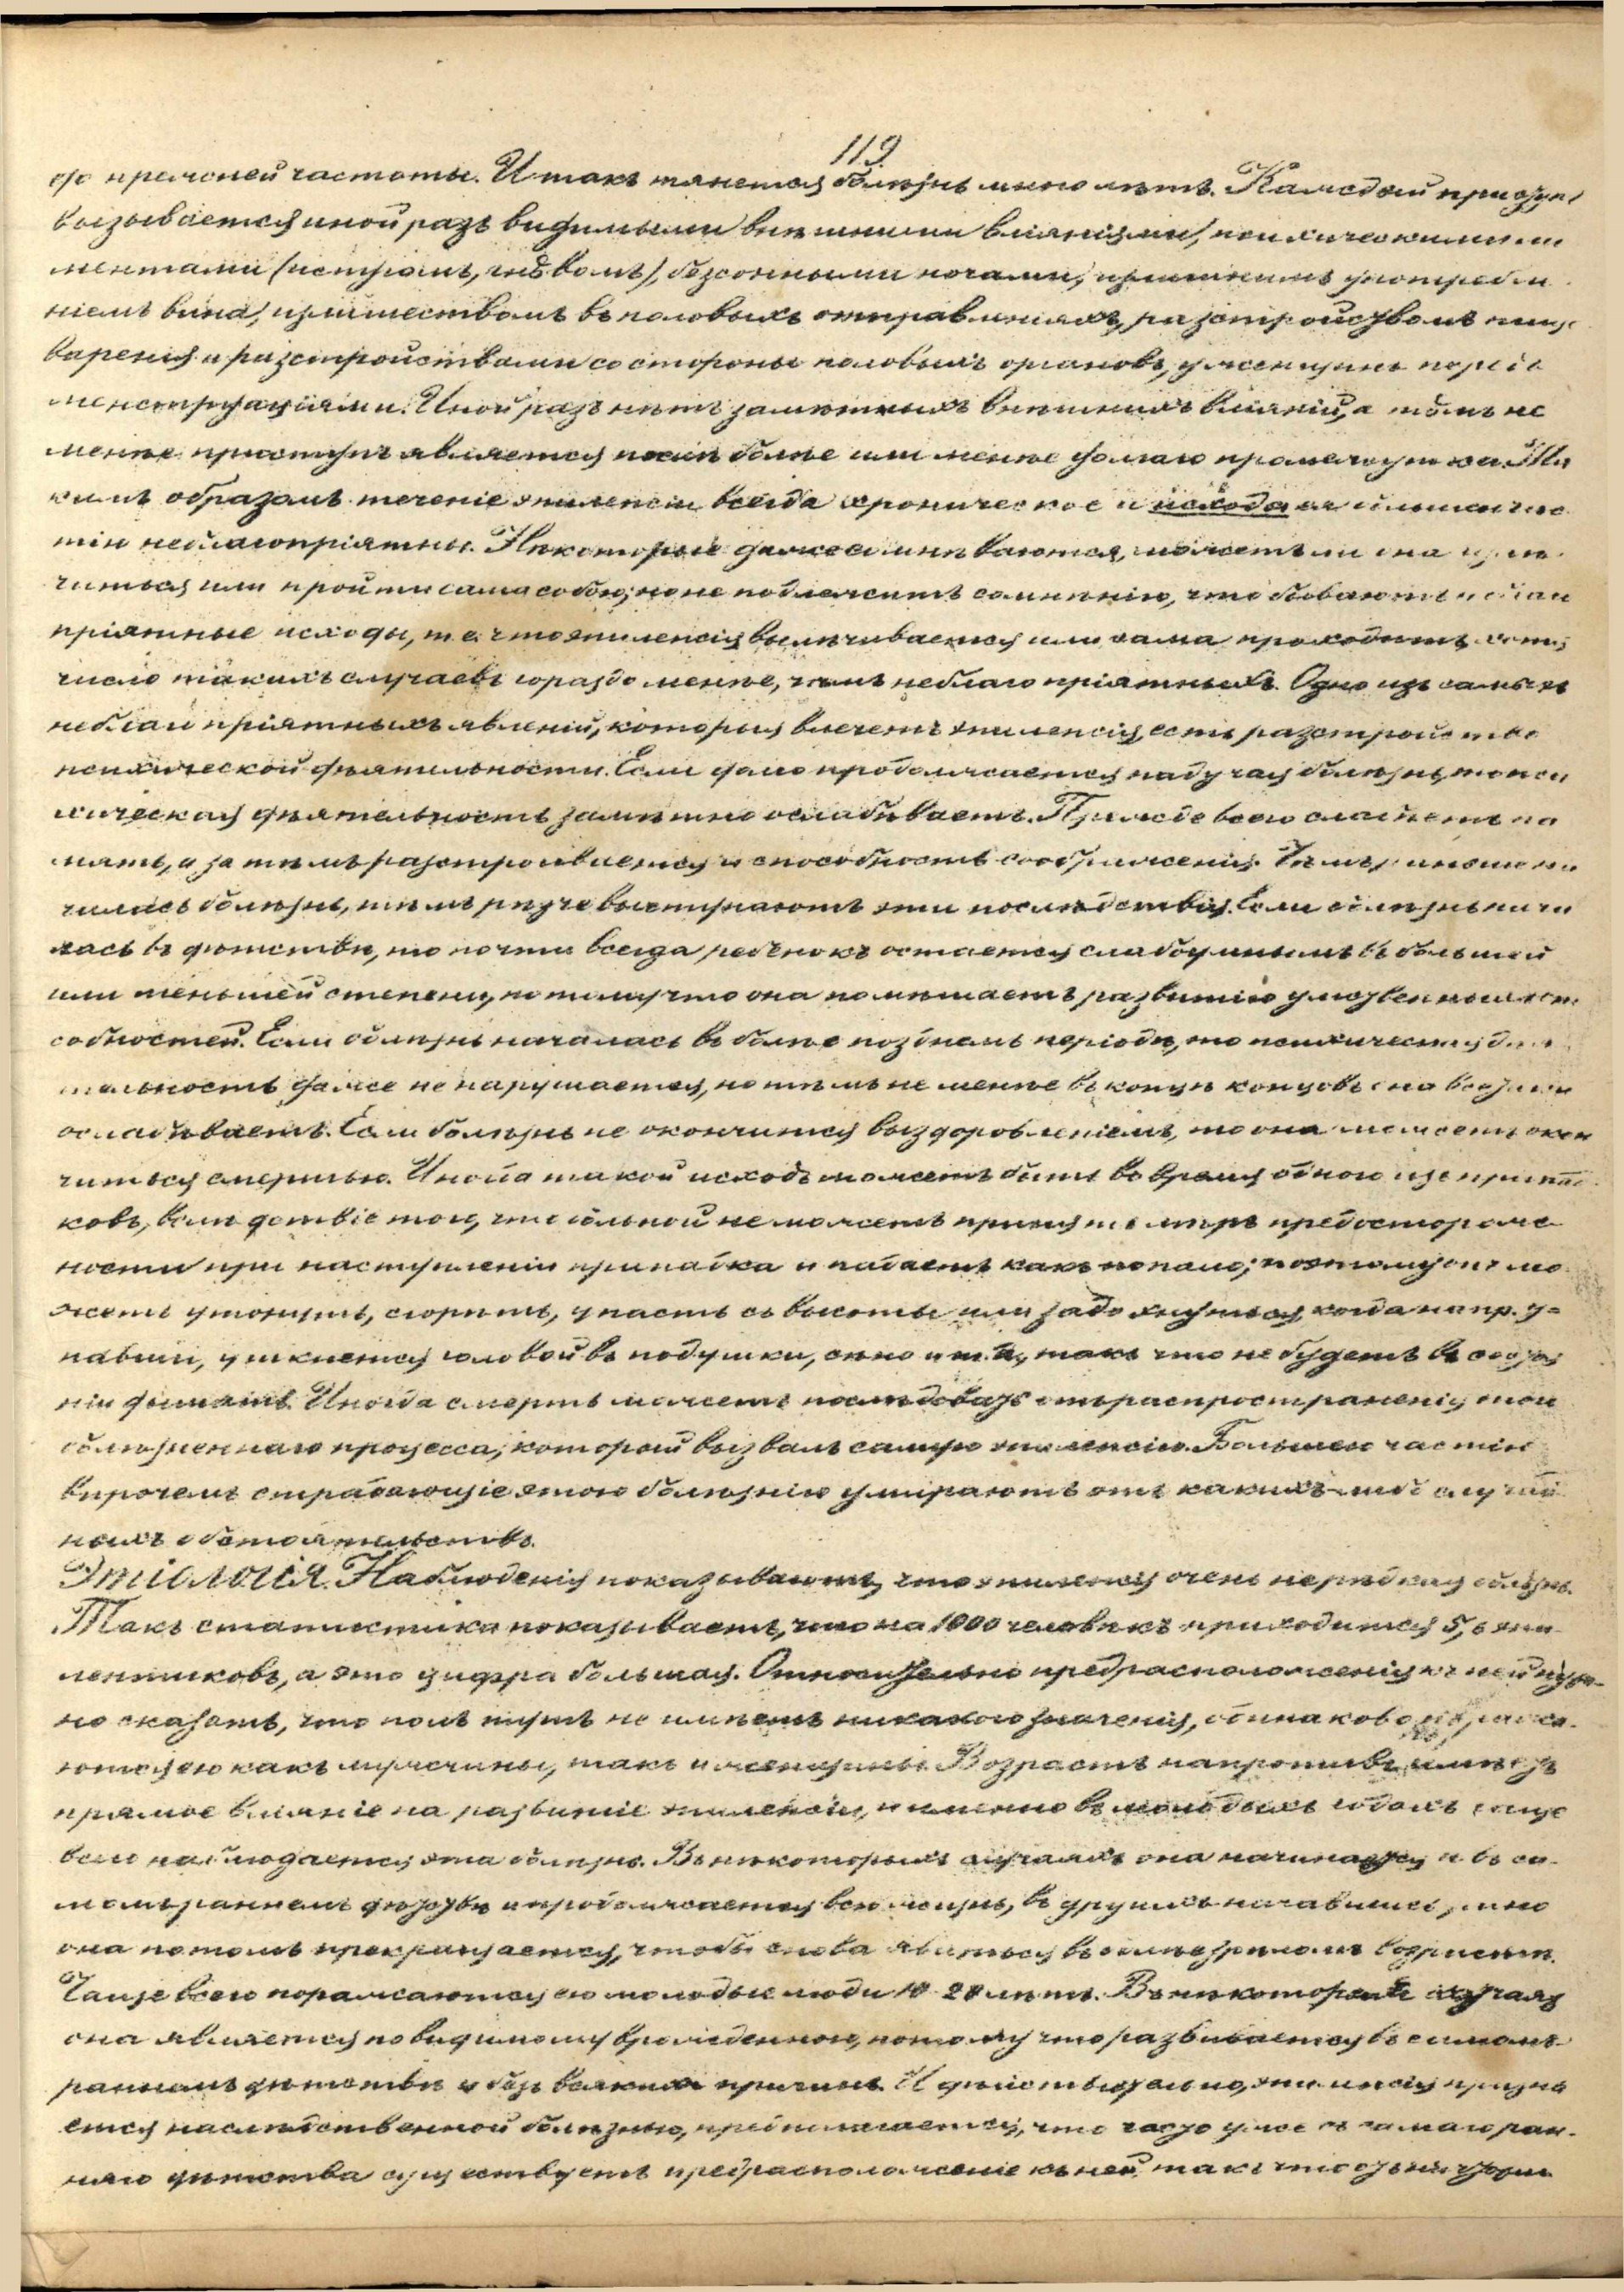 119
до прежней частоты. И такъ тянется болѣзнь много лѣтъ. Каждый припа
вызывается иной разъ видимыми внѣшними вліяніями, психическими
ментами (испугомъ, гнѣвомъ), безсонными ночами, излишнимъ употребле
ніемъ вина, излишествомъ въ половыхъ отправленіяхъ, разстройствомъ пище
варенія и разстройствами со стороны половыхъ органовъ, у женщинъ передъ
менструаціями. Иной разъ нѣтъ замѣтныхъ внѣшнихъ вліяній, а тѣмъ не
менѣе приступъ является послѣ болѣе или менѣе долгаго промежутка. Та
кимъ образомъ теченіе эпилепсіи всегда хроническое и исхода ея
неблагопріятны. Нѣкоторые даже сомнѣваются, можетъ ли она изле
читься или пройти сама собою; но не подлежитъ сомнѣнію, что бываютъ и благо
пріятные исходы, т. е. что эпилепсія вылечивается или сама проходитъ, хотя
число такихъ случаевъ гораздо менѣе, чѣмъ неблагопріятныхъ. Одно изъ самыхъ
неблагопріятныхъ явленій, которыя влечетъ эпилепсія, есть разстройство
психической дѣятельности. Если долго продолжается падучая болѣзнь, то пси
хическая дѣятельность замѣтно ослабѣваетъ. Прежде всего слабѣетъ па
мять, а затѣмъ разстроивается и способность соображенія. Чѣмъ раньше на
чалась болѣзнь, тѣмъ рѣзче выступаютъ эти послѣдствія. Если болѣзнь нача
лась въ дѣтствѣ, то почти всегда ребенокъ остается слабоумнымъ въ большей
или меньшей степени, потому что она помѣшаетъ развитію умственныхъ спо
собностей. Если болѣзнь началась въ болѣе позднемъ періодѣ, то психическая дѣя
тельность даже не нарушается, но тѣмъ не менѣе въ концѣ концовъ она всегда
ослабѣваетъ. Если болѣзнь не окончится выздоровленіемъ, то она можетъ окон
читься смертью. Иногда такой исходъ можетъ быть во время одного изъ припад
ковъ, вслѣдствіе того, что больной не можетъ принять мѣръ предосторож
ности при наступленіи припадка и падаетъ какъ попало; поэтому онъ мо
жетъ утонуть, сгорѣть, упасть съ высоты или задохнуться, когда напр. у-
павши, уткнется головой въ подушки, сѣно и т. д., такъ что не будетъ въ состоя
ніи дышать. Иногда смерть можетъ послѣдовать отъ распространенія того
болѣзненнаго процесса, который вызвалъ самую эпилепсію. Большею частію
впрочемъ страдающіе этою болѣзнію умираютъ отъ какихъ-либо случай
ныхъ обстоятельствъ.
Этіологія. Наблюденія показываютъ, что эпилепсія очень нерѣдкая болѣзнь.
Такъ статистика показываетъ, что на 1000 человѣкъ приходится 5,6 эпи-
лептиковъ, а это цифра большая. Относительно предрасположенія къ ней нуж-
но сказать, что полъ тутъ не имѣетъ никакого значенія, одинаково поража-
ются ею какъ мужчины, такъ и женщины. Возрастъ напротивъ имѣетъ
прямое вліяніе на развитіе эпилепсіи, и именно въ молодыхъ годахъ чаще
всего наблюдается эта болѣзнь. Въ нѣкоторыхъ случаяхъ она начинается и въ са-
момъ раннемъ дѣтствѣ и продолжается всю жизнь, въ другихъ начавшись рано
она потомъ прекращается, чтобы снова явиться въ болѣе зрѣломъ возрастѣ.
Чаще всего поражаются ею молодые люди 10 20 лѣтъ. Въ нѣкоторыхъ случаяхъ
она является повидимому врожденною, потому что развивается въ самомъ
раннемъ дѣтствѣ и безъ всякихъ причинъ. И дѣйствительно, эпилепсія призна
ется наслѣдственной болѣзнью, предполагается, что часто уже съ самаго ран-
няго дѣтства существуетъ предрасположеніе къ ней, такъ что